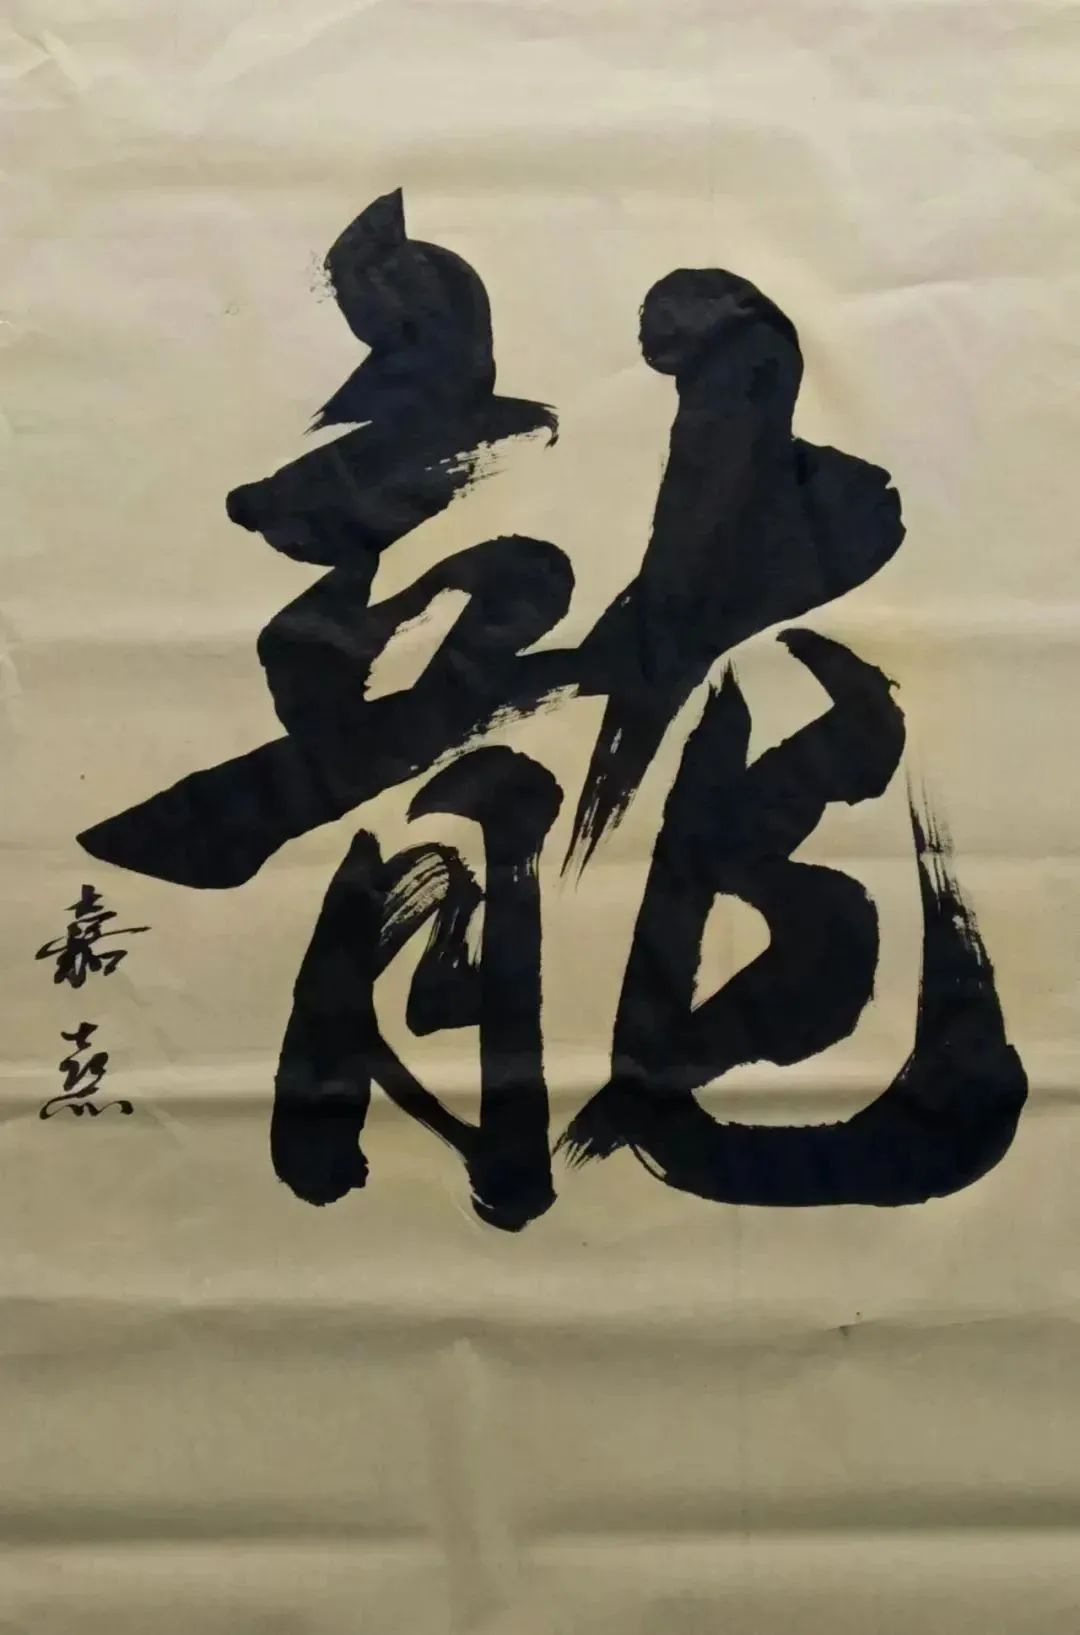 龍
嘉熹